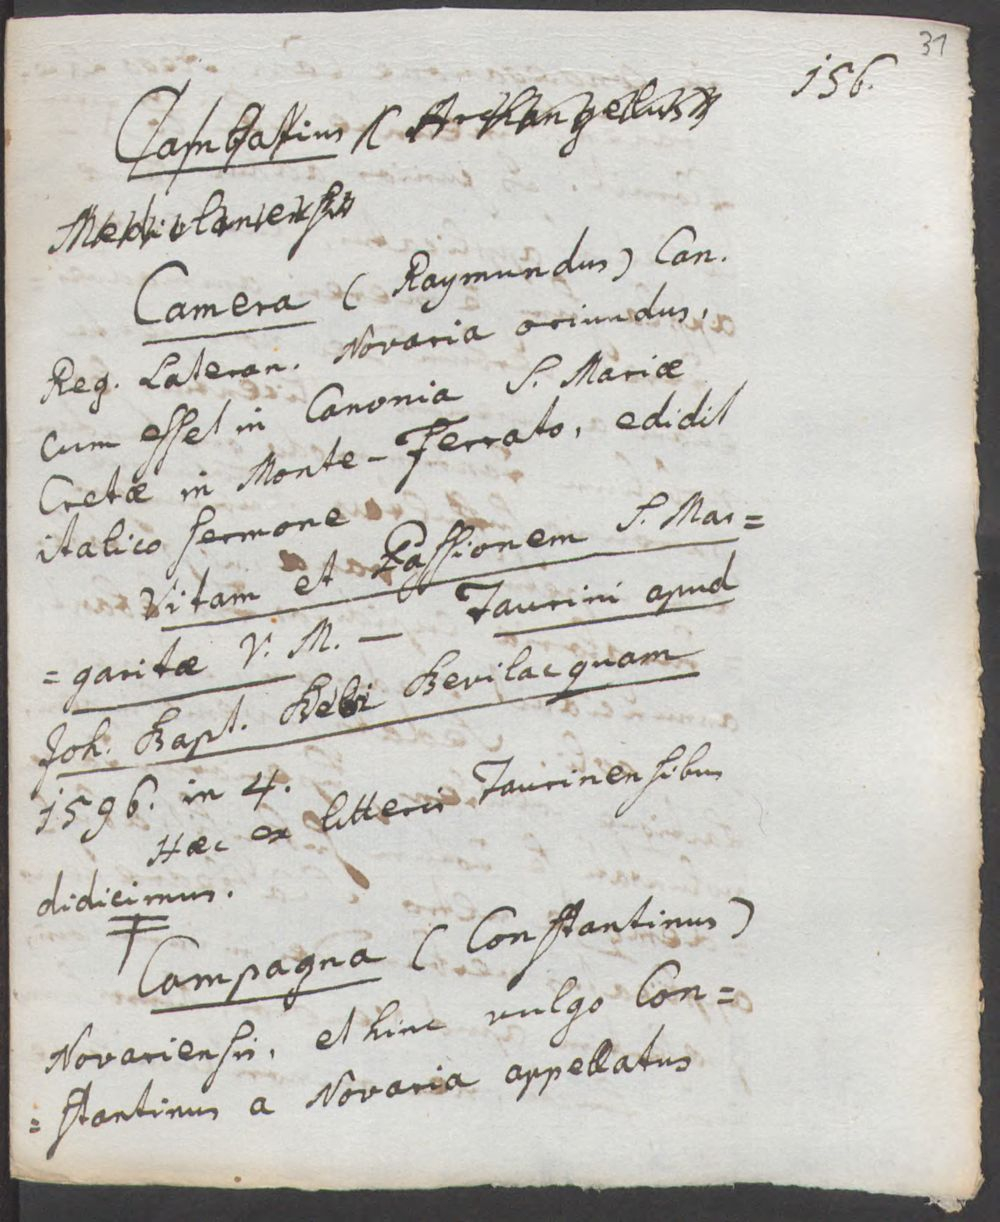 31
156.
( Archangellus )
Mediolanensis
Camera ( Raymundus ) Can.
Reg. Lateran. Novaria oriundus,
cum esset in Canonia S. Mariæ
Cretæ in Monte-Ferrato, edidit
italico sermone
Vitam et Passionem S. Mar=
=garitæ V. M. — Taurini apud
Joh. Bapt. Bevilacquam
1596. in 4.
Hæc ex litteris Taurinensibus
didicimus.
Campagna ( Constantinus )
Novariensis, et hinc vulgo Con=
=stantinus a Novaria appellatus